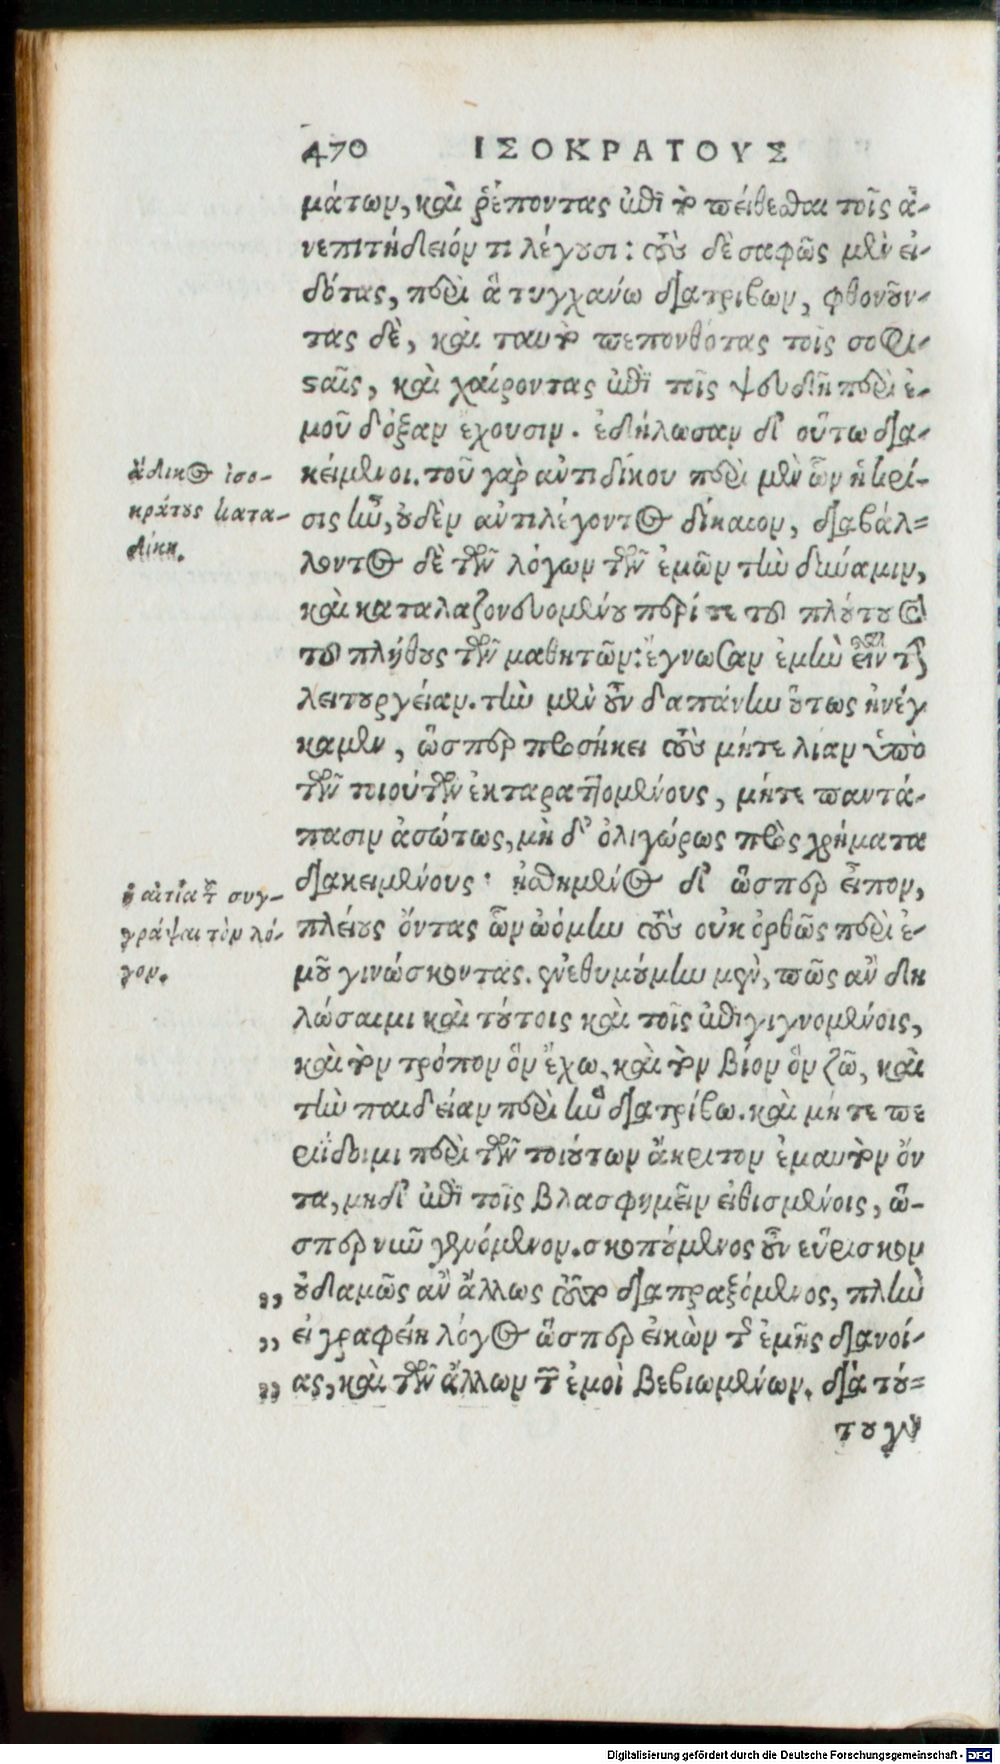 470 ΙΣΟΚΡΑΤΟΥΣ
μάτων, καὶ ῥέποντας ἐπὶ τὸ πείθεσθαι τοῖς ἀ-
νεπιτήδειόν τι λέγουσι: τοὺς δὲ σαφῶς μὲν εἰ-
δότας, περὶ ἃ τυγχάνω διατρίβων, φθονοῦν-
τας δὲ, καὶ ταυτὸ πεπονθότας τοῖς σοφι-
σταῖς, καὶ χαίροντας ἐπὶ τοῖς ψευδῆ περὶ ἐ-
μοῦ δόξαν ἔχουσιν. ἐδήλωσαν δ' οὕτω δια-
κείμενοι. τοῦ γὰρ ἀντιδίκου περὶ μὲν ὧν ἡ κρί-
σις ἦν, οὐδὲν ἀντιλέγοντος δίκαιον, διαβάλ=
λοντος δὲ τῶν λόγων τῶν ἐμῶν τὴν δύναμιν,
καὶ καταλαζονευομένου περί τε τοῦ πλούτου καὶ
τοῦ πλήθους τῶν μαθητῶν: ἔγνωσαν ἐμὴν εἶναι τὴν
λειτουργείαν. τὴν μὲν οὖν δαπάνην οὕτως ἠνέγ
καμεν, ὥσπερ προσήκει τοὺς μήτε λίαν ὑπὸ
τῶν τοιούτων ἐκταραττομένους, μήτε παντά-
πασιν ἀσώτως, μὴ δ' ὀλιγώρως πρὸς χρήματα
διακειμένους· ᾐσθημένος δ' ὥσπερ εἶπον,
πλείους ὄντας ὧν ᾠόμην τοὺς οὐκ ὀρθῶς περὶ ἐ-
μοῦ γινώσκοντας. ἐνεθυμούμην μὲν, πῶς ἂν δη
λώσαιμι καὶ τούτοις καὶ τοῖς ἐπιγιγνομένοις,
καὶ τὸν τρόπον ὃν ἔχω, καὶ τὸν βίον ὃν ζῶ, καὶ
τὴν παιδείαν περὶ ἣν διατρίβω. καὶ μή τε πε
ριΐδοιμι περὶ τῶν τοιούτων ἄκριτον ἐμαυτὸν ὄν
τα, μηδ' ἐπὶ τοῖς βλασφημεῖν εἰθισμένοις, ὥ-
σπερ νῦν γενόμενον. σκοπούμενος οὖν εὕρισκον
,, οὐδαμῶς ἂν ἄλλως τοῦτο διαπραξόμενος, πλὴν
,, εἰ γραφείη λόγος ὥσπερ εἰκὼν τῆς ἐμῆς διανοί-
,, ας, καὶ τῶν ἄλλων τῶν ἐμοὶ βεβιωμένων. διὰ τού=
του γὰρ
ἄδικος ἰσο-
κράτους κατα-
δίκη.
ἡ αἰτία τοῦ συγ-
γράψαι τὸν λό-
γον.
Digitalisierung gefördert durch die Deutsche Forschungsgemeinschaft - DFG